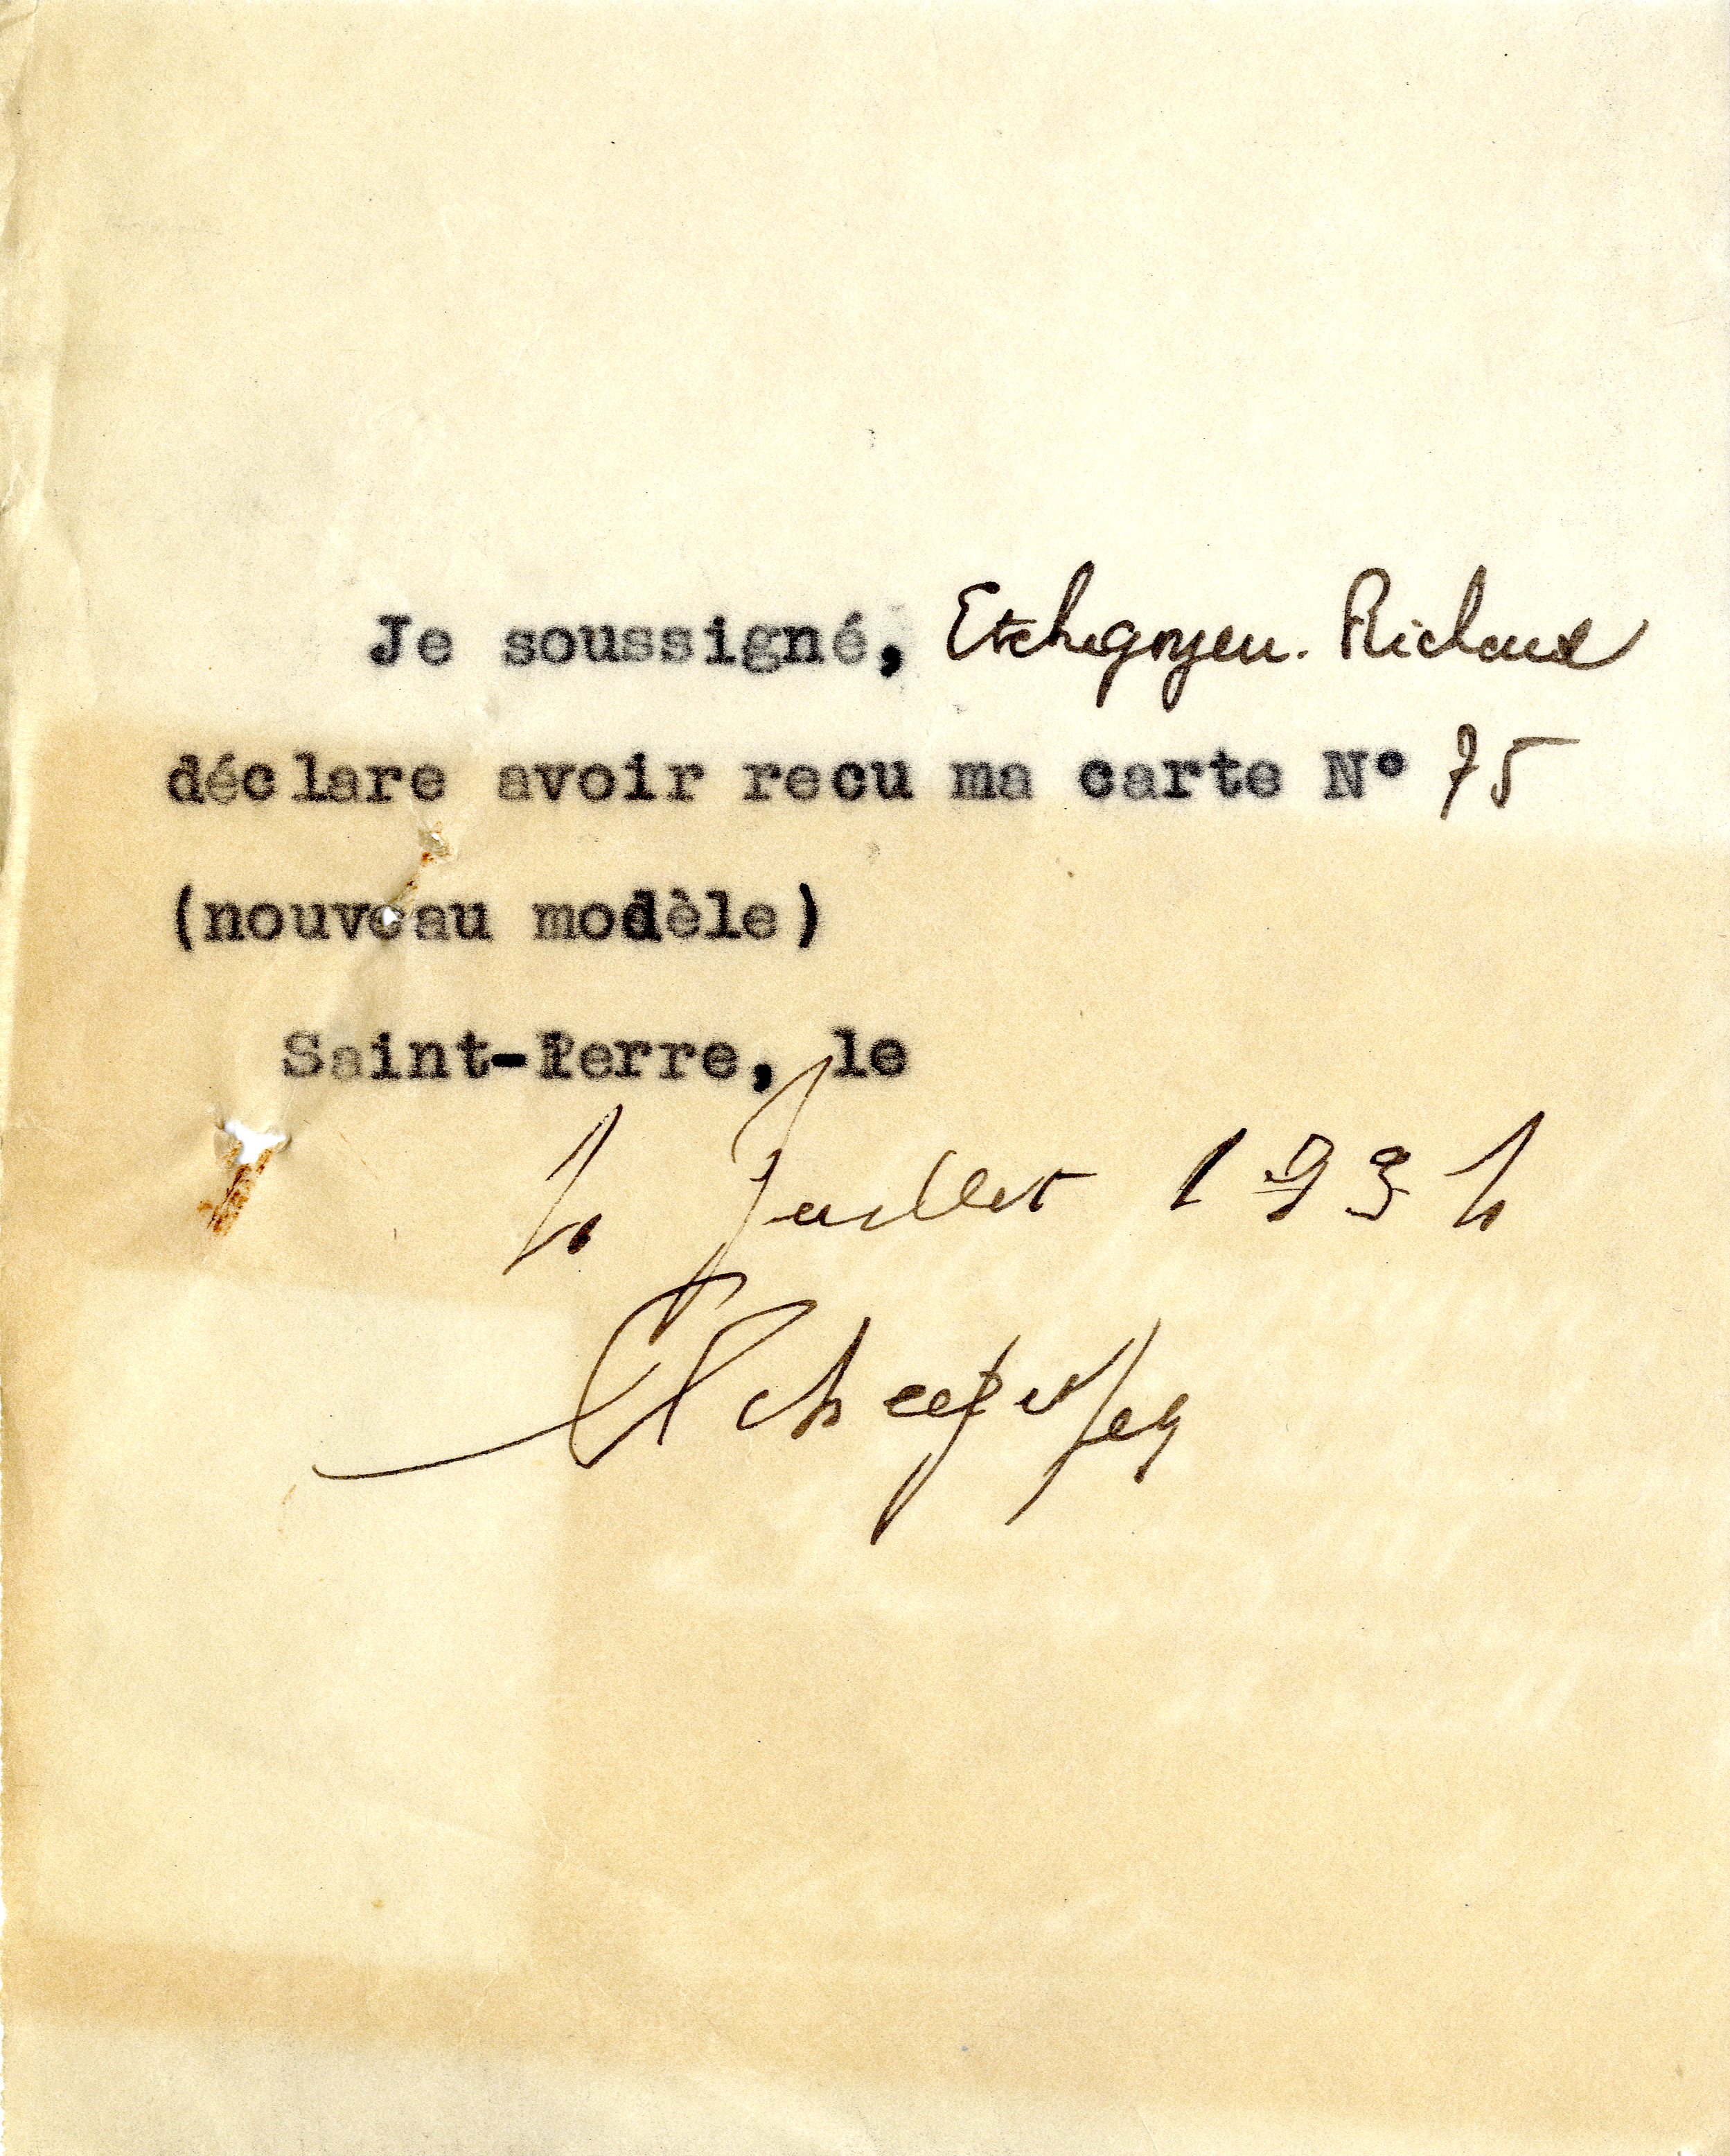 Je soussigné, Etchegoyen. Richard
déclare avoir recu ma carte N° 75
(nouveau modèle)
Saint-Perre, le
4 Juillet 1934
Etchegoyen